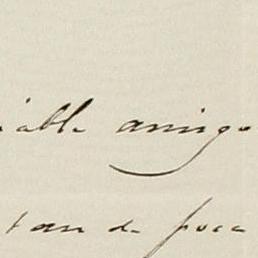 iable amigo
tan de poca